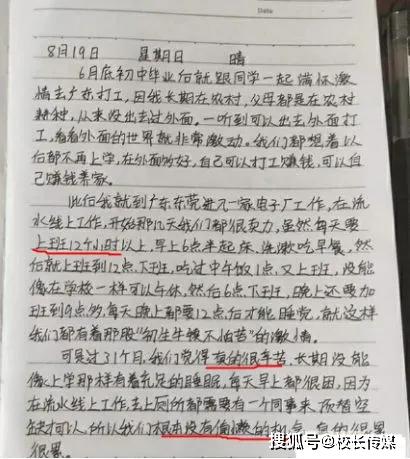 Date
8月19日 星期日 晴
6月底初中毕业后就跟同学一起满怀激
情去广东打工,因我长期在农村,父母都是在农村
耕种,从来没出去过外面。一听到可以出去外面打
工,看看外面的世界就非常激动。我们都想着以
后都不再上学,在外面多好,自己可以打工赚钱,可以自
己赚钱养家。
此后我就到广东东莞进一家电子厂工作,在流
水线上工作,开始那几天我们都很卖力,虽然每天要
上班12个小时以上,早上6点半起床、洗漱吃早餐,然
后就上班到12点下班,吃过中午饭1点又上班,没能
像在学校一样可以午休,然后6点下班,晚上还要加
班到9点多,每天晚上都要12点后才能睡觉,就这样
我们都有着那股“初生牛犊不怕苦”的激情。
可是过了1个月,我们觉得真的很辛苦,长期没能
像上学那样有着充足的睡眠,每天早上都很困,因为
在流水线上工作,去上厕所都需要有一个同事来顶替空
缺才可以,所以我们根本没有偷懒的机会,真的很累
很累。
搜狐号@校长传媒